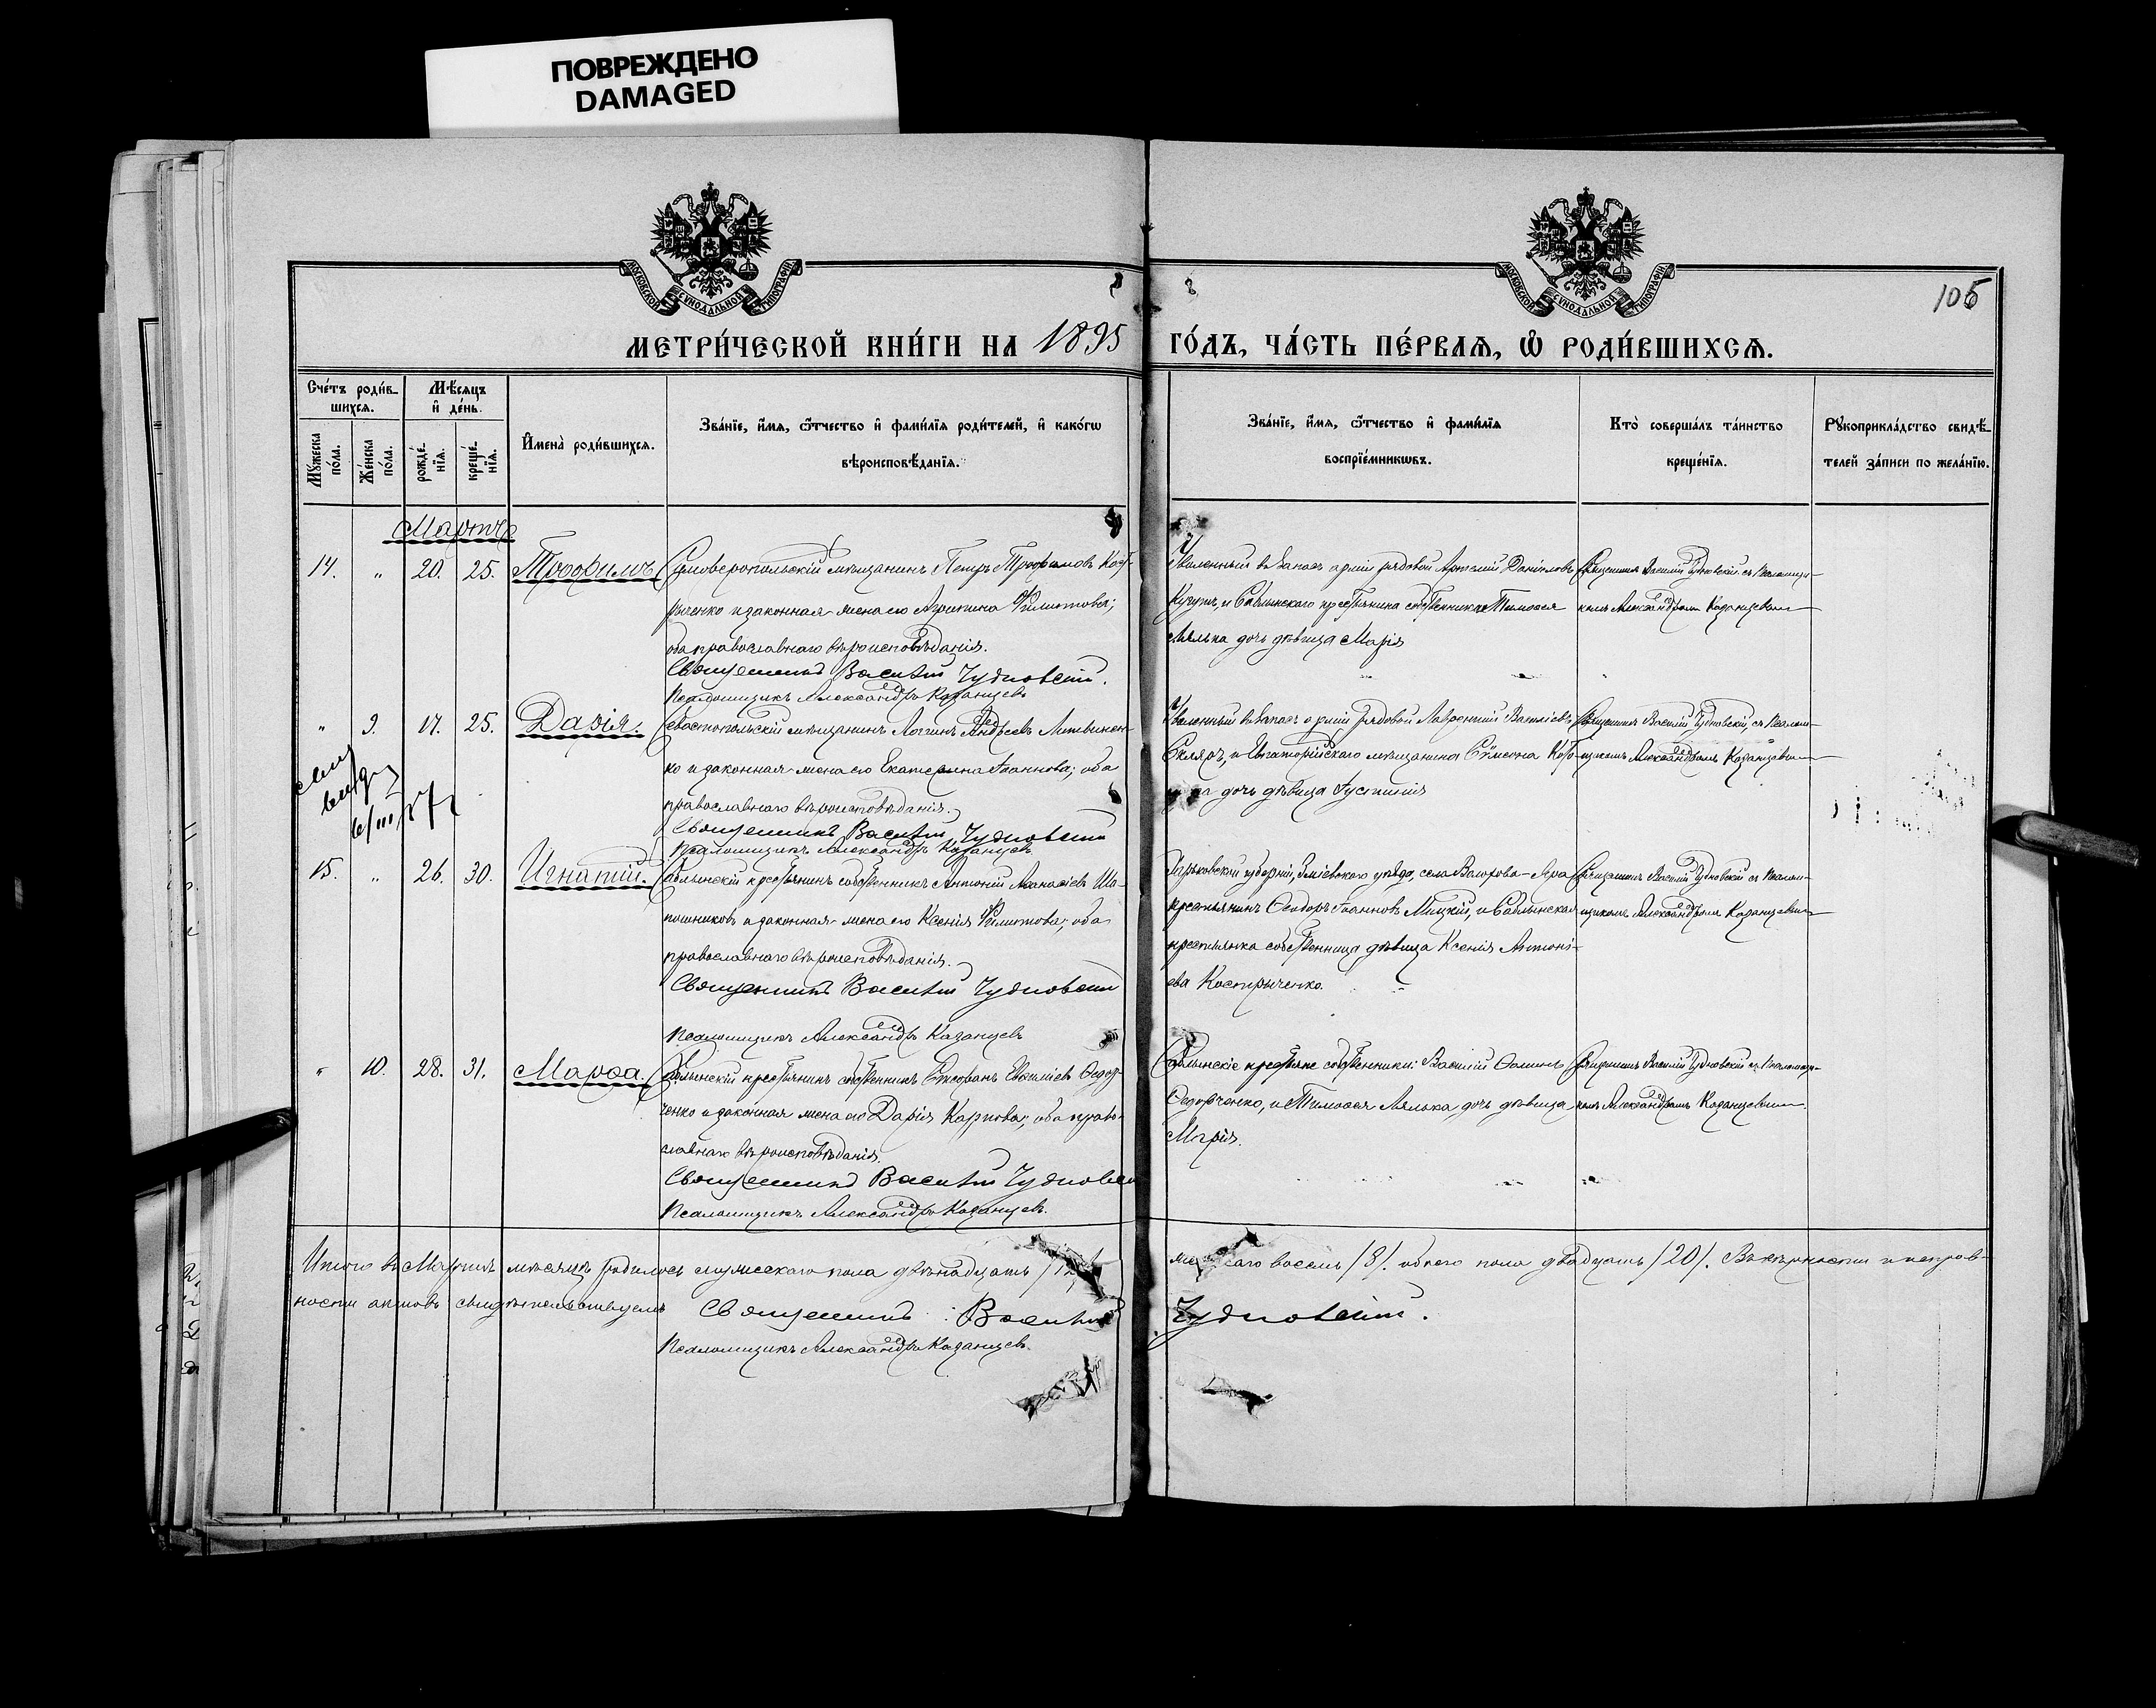 ПОВРЕЖДЕНО
DAMAGED
МОСКОВСКОЙ СѴНОДАЛЬНОЙ ТИПОГРАФІИ
МОСКОВСКОЙ СѴНОДАЛЬНОЙ ТИПОГРАФІИ
105
МЕТРИ́ЧЕСКОЙ КНИ́ГИ НА 1895 ГО́ДЪ, ЧА́СТЬ ПЕ́РВАѦ, Ѡ РОДИ́ВШИХСѦ.
Сче́тъ роди́в-
шихсѧ.
Мѣ́сяцъ
и де́нь.
Мꙋжеска по́ла.
Же́нска по́ла.
рожде́-
нїѧ.
креще́-
нїѧ.
Имена̀ роди́вшихсѧ.
Зва́нїе, и́мѧ, ѻ́тчество и фами́лїѧ роди́телей, и како́гѡ
вѣроисповѣ́данїѧ.
Зва́нїе, и́мѧ, ѻ́тчество и фами́лїѧ
воспрїе́мникѡвъ.
Кто̀ соверша́лъ та́инство
креще́нїѧ.
Рꙋкоприкла́дство свидѣ́-
телей за́писи по жела́нїю.
Мартъ
14. „ 20. 25. Трофимъ Симферопольскій мѣщанинъ Петръ Трофимовъ Кост-
рыченко и законная жена его Агрипина Филиппова;
оба православнаго вѣроисповѣданія.
Священникъ Василій Чудновскій.
Псаломщикъ Александръ Казанцевъ
Уволенный въ запасъ арміи рядовой Артемій Даниловъ
и Саблынскаго крестьянина собственника Тимофея
Лялька дочь дѣвица Марія
Священникъ Василій Чудновскій съ псаломщи-
комъ Александромъ Казанцевымъ
„ 9. 17. 25. Дарія. Севастопольскій мѣщанинъ Логгинъ Андреевъ Литвинен-
ко и законная жена его Екатерина Іоаннова; оба
православнаго вѣроисповѣданія.
Священникъ Василій Чудновскій
Псаломщикъ Александръ Казанцевъ
Уволенный въ запасъ арміи рядовой Лаврентій Василіевъ
Скляръ, и Евпаторійскаго мѣщанина Сѵмеона
дочь дѣвица Іустинія
Священникъ Василій Чудновскій, съ псалом-
щикомъ Александромъ Казанцевымъ
15. „ 26. 30. Игнатій. Саблынскій крестьянинъ собственникъ Антоній Аѳанасіевъ Ша-
пошниковъ и законная жена его Ксенія Филиппова; оба
православнаго вѣроисповѣданія.
Священникъ Василій Чудновскій
Псаломщикъ Александръ Казанцевъ
Харьковской губерніи, Зміевского уѣзда, села
крестьянинъ Ѳеодоръ Іоанновъ Мицкій, и Саблынская
крестьянка собственница дѣвица Ксенія Антоні-
ева Кострыченко.
Священникъ Василій Чудновскій съ псалом-
щикомъ Александромъ Казанцевымъ
„ 10. 28. 31. Марѳа. Саблынскій крестьянинъ собственникъ Стефанъ Ѳедор-
ченко и законная жена его Дарія Карпова; оба право-
славнаго вѣроисповѣданія.
Священникъ Василій Чудновскій
Псаломщикъ Александръ Казанцевъ.
Саблынскіе крестьяне собственники: Василій Ѳоминъ
Ѳедорченко, и Тимоѳея Лялька дочь дѣвица
Марія.
Священникъ Василій Чудновскій съ псаломщи-
комъ Александромъ Казанцевымъ.
Итого въ Мартѣ мѣсяцѣ родилось мужескаго пола двѣнадцать /12/ женскаго восемь /8/. обоего пола двадцать /20/. Въ вѣрности и исправ-
ности актовъ свидѣтельствуемъ Священникъ Василій Чудновскій.
Псаломщикъ Александръ Казанцевъ.